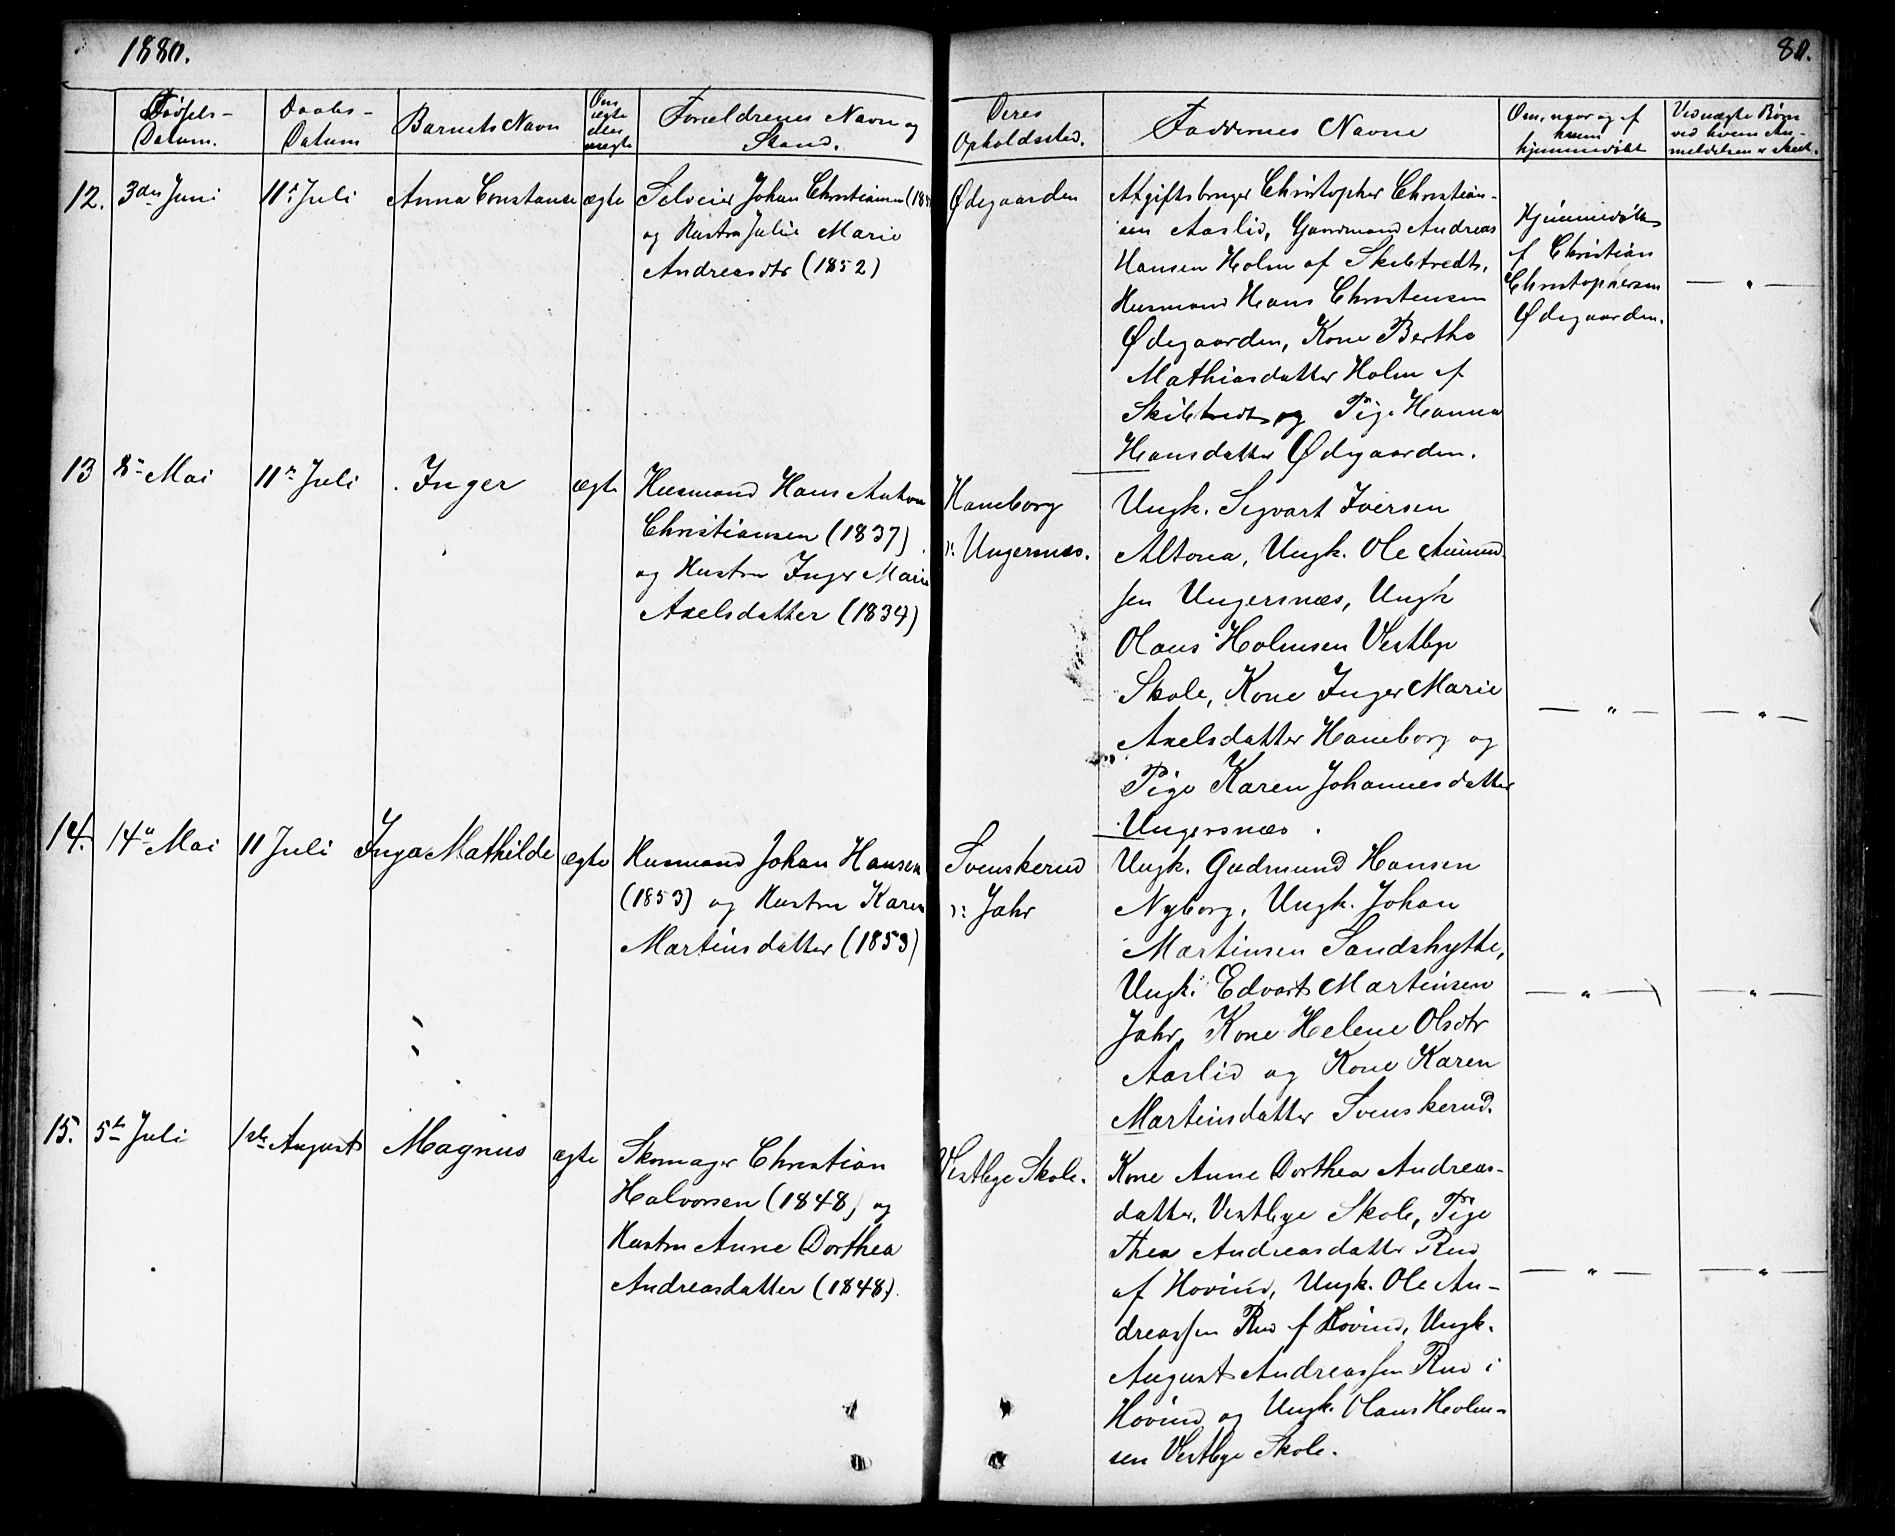 1880.
80.
Fødsels-
Datum.
Daabs-
Datum
Barnets Navn
Om
ægte
eller
uægte
Forældrenes Navn og
Stand.
Deres
Opholdssted.
Faddernes Navne
Om, naar og af
hvem
hjemmedøbt
Ved uægte Børn
ved hvem An-
meldelsen er skeet.
12. 3die Juni
11te Juli
Anna Constanse
ægte
Selveier Johan Christiansen
og Hustru Julie Marie
Andreasdtr (1852)
Ødegaarden
Afgiftsbruger Christopher Christian-
sen Aaslid, Gaardmand Andreas
Hansen Holm af Skibtvedt,
Husmand Hans Christensen
Ødegaarden, Kone Berthe
Mathiasdatter Holm af
Skibtvedt og Pige Hanna
Hansdatter Ødegaarden.
Hjemmedøbt
af Christian
Christophersen
Ødegaarden.
— " —
13 8de Mai
11te Juli
Inger
ægte
Husmand Hans Anton
Christiansen (1837)
og Hustru Inger Marie
Axelsdatter (1834)
Haneborg
ɔ: Ungersnæs.
Ungk. Sigvart Iversen
Altona, Ungk. Ole Amund
sen Ungersnæs, Ungk
Olaus Holmsen Vestbye
Skole, Kone Inger Marie
Axelsdatter Haneborg og
Pige Karen Johannesdatter
Ungersnæs.
— " —
— " —
14. 14de Mai
11 Juli
Inga Mathilde
ægte
Husmand Johan Hansen
(1853) og Hustru Karen
Martinsdatter (1853)
Svenskerud
ɔ: Jahr
Ungk. Gudmund Hansen
Nyborg, Ungk. Johan
Martinsen Sandshytte,
Ungk. Edvart Martinsen
Jahr, Kone Helene Olsdtr
Aaslid og Kone Karen
Martinsdatter Svenskerud.
— " —
— " —
15. 5te Juli
1ste August
Magnus
ægte
Skomager Christian
Halvorsen (1848) og
Hustru Anne Dorthea
Andreasdatter (1848).
Vestbye Skole.
Kone Anne Dorthea Andreas-
datter, Vestbye Skole, Pige
Thea Andreasdatter Rud
af Hovind, Ungk. Ole An-
dreassen Rud af Hovind, Ungk.
August Andreassen Rud i
Hovind og Ungk. Olaus Holm-
sen Vestbye Skole.
— " —
— " —